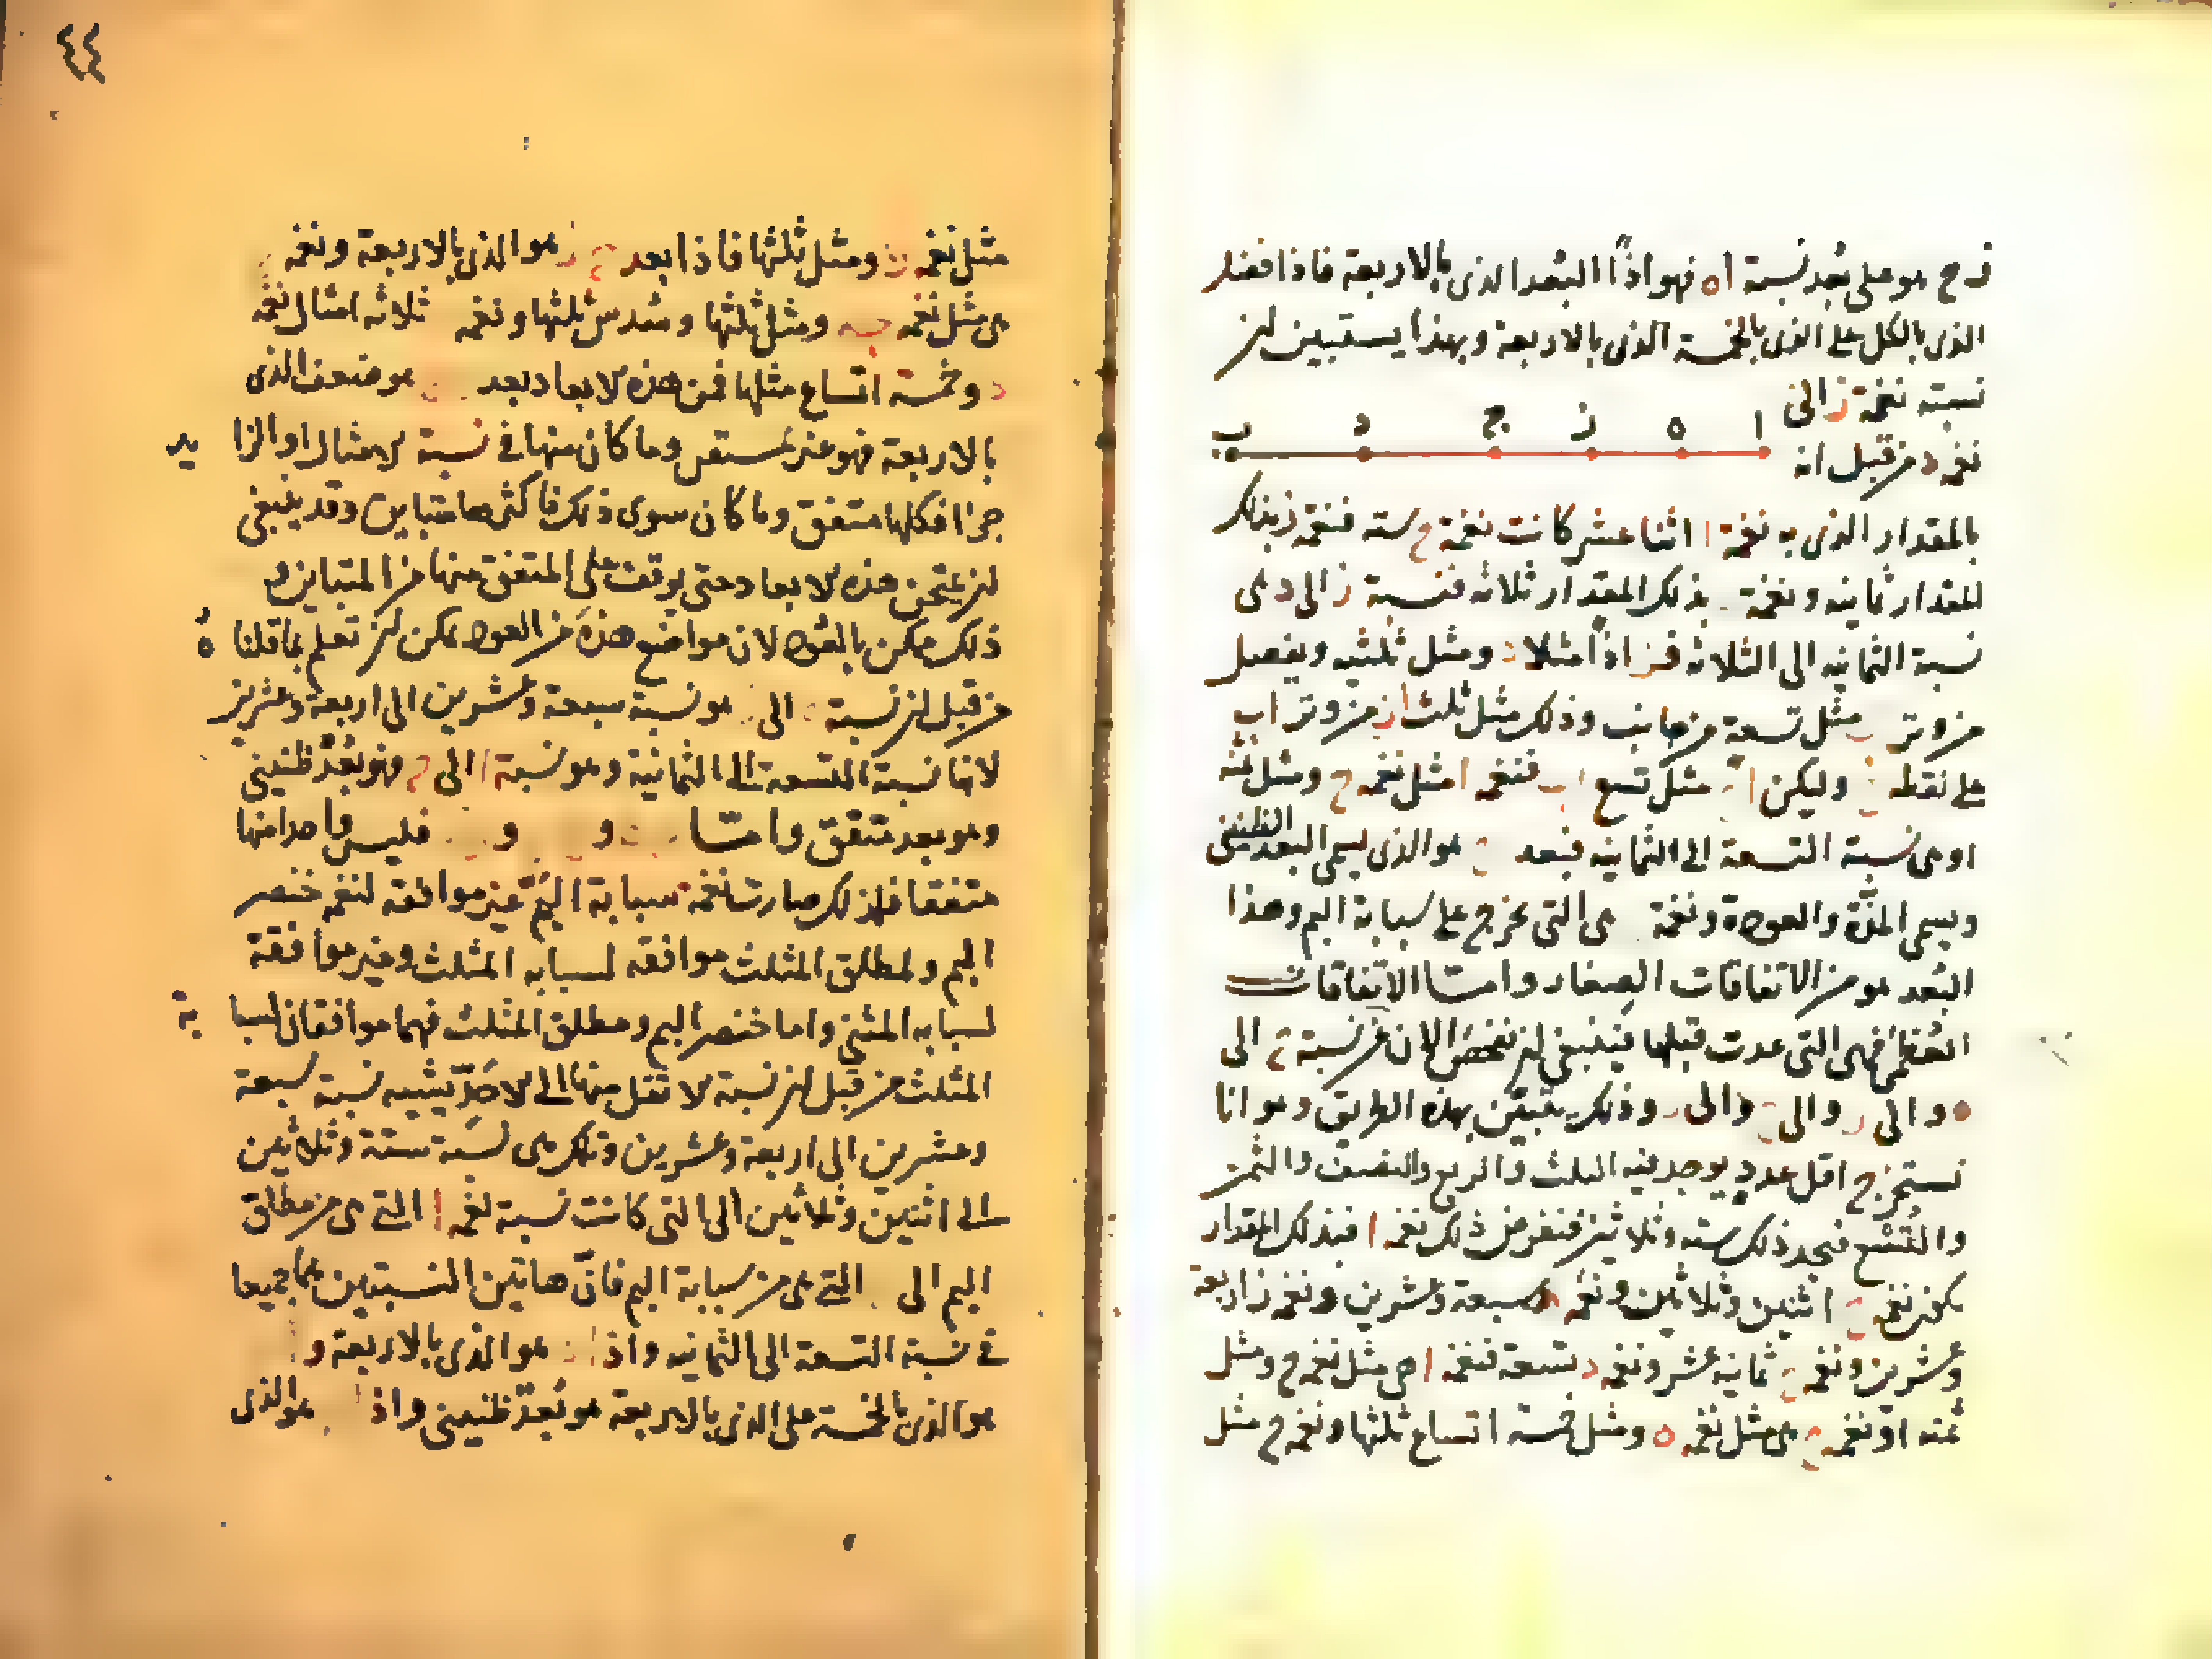 زح هو على بُعد نسبة اه فهو اذًا البُعد الذى بالاربعة فاذا فضل
الذى بالكل على الذى بالخمسة الذى بالاربعة وبهذا يستبين لنز
نسبة نغمة ز الى
ا ه ز ج د ب
نغمة د من قبل انه
بالمقدار الذى به نغمة ا اثنا عشر كانت نغمة ح ستة فنغمة ز بذلك
المقدار ثمانيه ونغمة بذلك المقدار ثلاثه فنسبة ز الى د هى
نسبة الثمانيه الى الثلاثه فز اذًا مثلا د ومثل ثلثيه ويفصل
من وتر ب مثل تسعة من جانب وذلك مثل ثلث از من وتر اب
على نقطه وليكن ا مثل تسع ا ب فنغمة ا مثل نغمه ح ومثل ثمنه
او هى نسبة التسعة الى الثمانيه فبعد ح هو الذى يسمى البعد الطنينى
ويسمى المدّة والعودة ونغمة هى التى تخرج على سبابة البم وهذا
البُعد هو من الاتفاقات الصغار وامّا الاتفاقات
العُظمى فهى التى عدت قبلها فينبغى ان نفحص الان عن نسبة ح الى
ه والى ز والى ح والى وذلك يتبيّن بهذه الطريق وهو انا
نستخرج اقل عدد يوجد فيه الثلث والربع والنصف والثمن
والتُسْع فنجد ذلك سته وثلاثين فنفرض ذلك نغمه ا فبذلك المقدار
تكون نغمه ح اثنين وثلاثين ونغمه ه سبعة وعشرين ونغمه ز اربعة
وعشرين ونغمه ح ثمانيه عشر ونغمه د تسعة فنغمة ا هى مثل نغمه ح ومثل
ثمنه او نغمه ح هى مثل نغمه ه ومثل خمسة اتساع ثلثها ونغمه ح مثل
٤٤
مثل نغمه ز ومثل ثلثها فاذا بعد ح ز هو الذى بالاربعة ونغمه
هى مثل نغمه ح ومثل ثلثها وسُدس ثلثها ونغمه ثلاثه امثال نغمة
د وخمسة اتساع مثلها فمن هذه الابعاد بعد هو ضعف الذى
بالاربعة فهو غير متفق وما كان منها فى نسبة الامثال او الزايد
جزا فكلها متفق وما كان سوى ذلك فاكثرها متباين وقد ينبغى
ان يمتحن هذه الابعاد حتى يوقف على المتفق منها من المتباين و
ذلك ممكن بالعُود لان مواضع هذه من العود يمكن ان تعلم بما قلناه
من قبل ان نسبة الى هو نسبة سبعة وعشرين الى اربعة وعشرين
لانها نسبة التسعة الى الثمانية وهو نسبة ا الى ح فهو بُعدٌ طنينى
وهو بعد متفق وامّا و و فليس واحدا منها
متفقا فلذلك صارت نغمة سبابة البمّ غير موافقه لنغمه خنصر
البم ولمطلق المثلث موافقه لسبابه المثلث وغير موافقة
لسبابه المثنى واما خنصر البم ومطلق المثلث فهما موافقان لسبابة
المثلث من قبل ان نسبة الاثقل منها الى الاحَدّ يشبه نسبة سبعة
وعشرين الى اربعة وعشرين وتلك هى نسبة ستة وثلاثين
الى اثنين وثلاثين الى التى كانت نسبة نغمه ا التى هى من مطلق
البم الى التى هى من سبابة البم فانّ هاتين النسبتين هما جميعا
فى نسبة التسعة الى الثمانيه واذا هو الذى بالاربعة و ا
هو الذى بالخمسة على الذى بالاربعة هو بُعدٌ طنينى واذا هو الذى